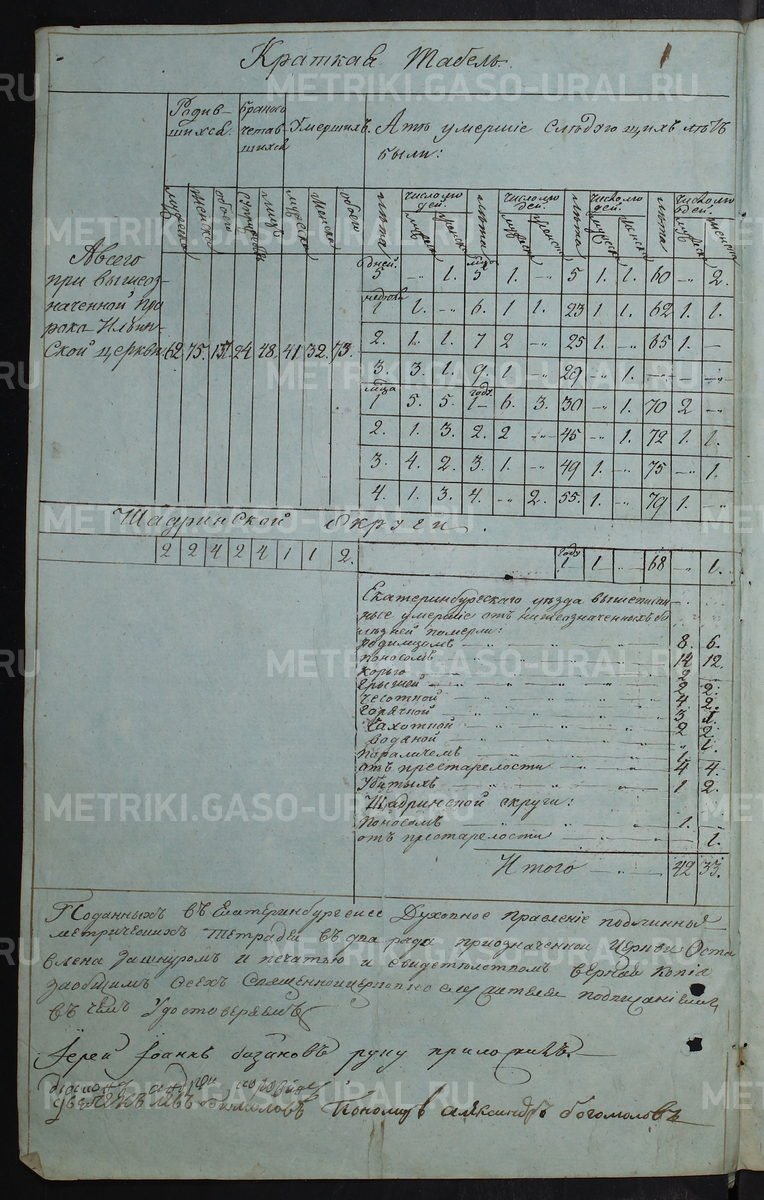 Краткая Табель.
Родив-шихся: Бракосочетавшихся Умершихъ. А отъ умершіе слѣдующихъ лѣтъ были:
мужеска женска обоего супружествъ лицъ мужеска женска обоего
лѣта числомъ дей. мужска женска лѣта числомъ дей. мужска женска лѣта числомъ дей. мужска женска лѣта числомъ дей. мужска женска
А всего
при вышеоз-
наченной про
рока Ильин-
ской церкви 62 75. 137. 24. 48. 41. 32. 73.
дней. 5 -- 1. 5 1. -- 5 1. 1. 60 -- 2.
недель 1 1. -- 6. 1 1. 23 1 1. 62 1. 1.
2. 1. 1. 7 2 -- 25 1. -- 65 1. --
3. 3. 1. 9. 1 -- 29 -- 1. -- -- --
мца 1 5. 5. годъ. 1 6. 3. 30 -- 1. 70 2 --
2. 1. 3. 2. 2 -- 45 -- 1. 72 1. 1.
3. 4. 2. 3. 1. -- 49 1. -- 75 -- 1.
4. 1. 3. 4. -- 2. 55. 1. -- 79 1. --
Шадринской Округи.
2 2 4 2 4 1 1 2. годъ 1 1 -- 68 -- 1.
Екатеринбургскаго уѣзда вышеписан-
ные умершіе отъ нижеозначенныхъ бо
лѣзней померли:
родимцомъ 8. 6.
поносомъ 12 12.
корью 2
грыжей 2 2.
чесотной 4 2
горячкой 3 1.
чахотной 2 2.
водяной 1.
параличемъ 1
отъ престарелости 4 4.
Убитыхъ 1 2.
Шадринской округи:
поносомъ 1.
отъ престарелости 1.
Итого 42 33.
Поданныхъ въ Екатеринбургское Духовное правленіе подлинныя
метрическихъ тетрадей въ два ряда приозначенной церкви оста
влена зашнуромъ и печатью и свидетельствомъ верная копія
заобщимъ всехъ Священноцерковно служителей подписаніемъ
въ чемъ удостоверяемъ
Іерей Іоаннъ руку приложилъ.
Пономарь Александръ Богомоловъ
METRIKI.GASO-URAL.RU